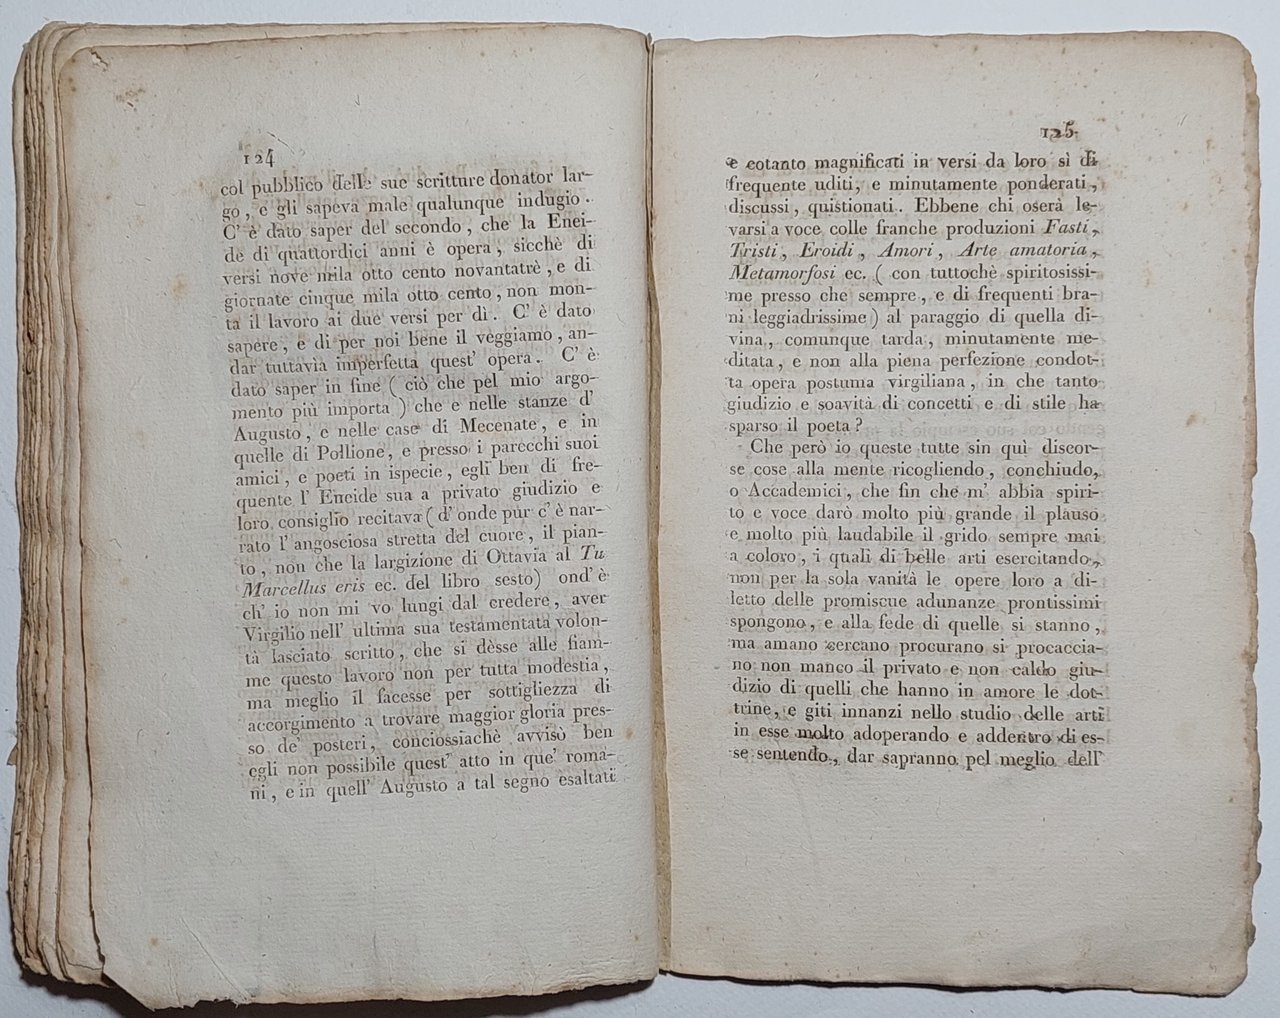 124
col pubblico delle sue scritture donator lar-
go, e gli sapeva male qualunque indugio.
C' è dato saper del secondo, che la Enei-
de di quattordici anni è opera, sicchè di
versi nove mila otto cento novantatrè, e di
giornate cinque mila otto cento, non mon-
ta il lavoro ai due versi per dì. C' è dato
sapere, e di per noi bene il veggiamo, an-
dar tuttavìa imperfetta quest' opera. C' è
dato saper in fine ( ciò che pel mio argo-
mento più importa ) che e nelle stanze d'
Augusto, e nelle case di Mecenate, e in
quelle di Pollione, e presso i parecchi suoi
amici, e poeti in ispecie, egli ben di fre-
quente l' Eneide sua a privato giudizio e
loro consiglio recitava ( d' onde pur c' è nar-
rato l' angosciosa stretta del cuore, il pian-
to, non che la largizione di Ottavia al Tu
Marcellus eris ec. del libro sesto) ond' è
ch' io non mi vo lungi dal credere, aver
Virgilio nell' ultima sua testamentata volon-
tà lasciato scritto, che si dèsse alle fiam-
me questo lavoro non per tutta modestia,
ma meglio il facesse per sottigliezza di
accorgimento a trovare maggior gloria pres-
so de' posteri, conciossiachè avvisò ben
egli non possibile quest' atto in que' roma-
ni, e in quell' Augusto a tal segno esaltati
125
e cotanto magnificati in versi da loro sì di
frequente uditi, e minutamente ponderati,
discussi, quistionati. Ebbene chi oserà le-
varsi a voce colle franche produzioni Fasti,
Tristi, Eroidi, Amori, Arte amatoria,
Metamorfosi ec. ( con tuttochè spiritosissi-
me presso che sempre, e di frequenti bra-
ni leggiadrissime ) al paraggio di quella di-
vina, comunque tarda, minutamente me-
ditata, e non alla piena perfezione condot-
ta opera postuma virgiliana, in che tanto
giudizio e soavità di concetti e di stile ha
sparso il poeta?
Che però io queste tutte sin quì discor-
se cose alla mente ricogliendo, conchiudo,
o Accademici, che fin che m' abbia spiri-
to e voce darò molto più grande il plauso
e molto più laudabile il grido sempre mai
a coloro, i quali di belle arti esercitando,
non per la sola vanità le opere loro a di-
letto delle promiscue adunanze prontissimi
spongono, e alla fede di quelle si stanno,
ma amano cercano procurano si procaccia-
no non manco il privato e non caldo giu-
dizio di quelli che hanno in amore le dot-
trine, e giti innanzi nello studio delle arti
in esse molto adoperando e addentro di es-
se sentendo, dar sapranno pel meglio dell'